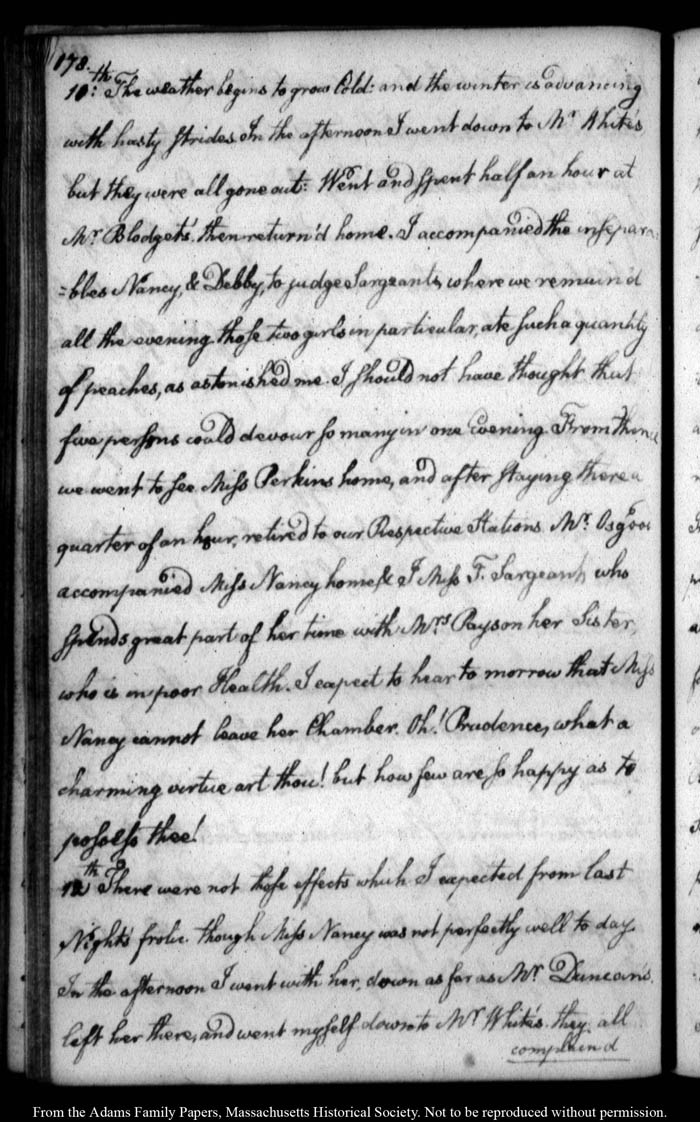 178.
10:th The weather begins to grow Cold: and the winter is advancing
with hasty strides. In the afternoon I went down to Mr. White's,
but they were all gone out: Went and spent half an hour at
Mr. Blodget's. then return'd home. I accompanied the insepara-
=bles Nancy, & Debby, to judge Sargeants, where we remain'd
all the evening those two girls in particular, ate such a quantity
of peaches, as astonished me. I should not have thought that
five persons could devour so many in one evening. From thence
we went to see Miss Perkins home, and after staying there a
quarter of an hour, retired to our Respective Stations. Mr. Osgood
accompanied Miss Nancy home, & I Miss T. Sargeant, who
spends great part of her time with Mrs. Payson her Sister,
who is in poor Health. I expect to hear to morrow that Miss
Nancy cannot leave her Chamber. Oh! Prudence, what a
charming virtue art thou! but how few are so happy as to
possess thee!
12th There were not those effects which I expected from last
Night's frolic. though Miss Nancy was not perfectly well to day.
In the afternoon I went with her, down as far as Mr. Duncan's.
left her there, and went myself down to Mr. White's. they all
complain'd
From the Adams Family Papers, Massachusetts Historical Society. Not to be reproduced without permission.